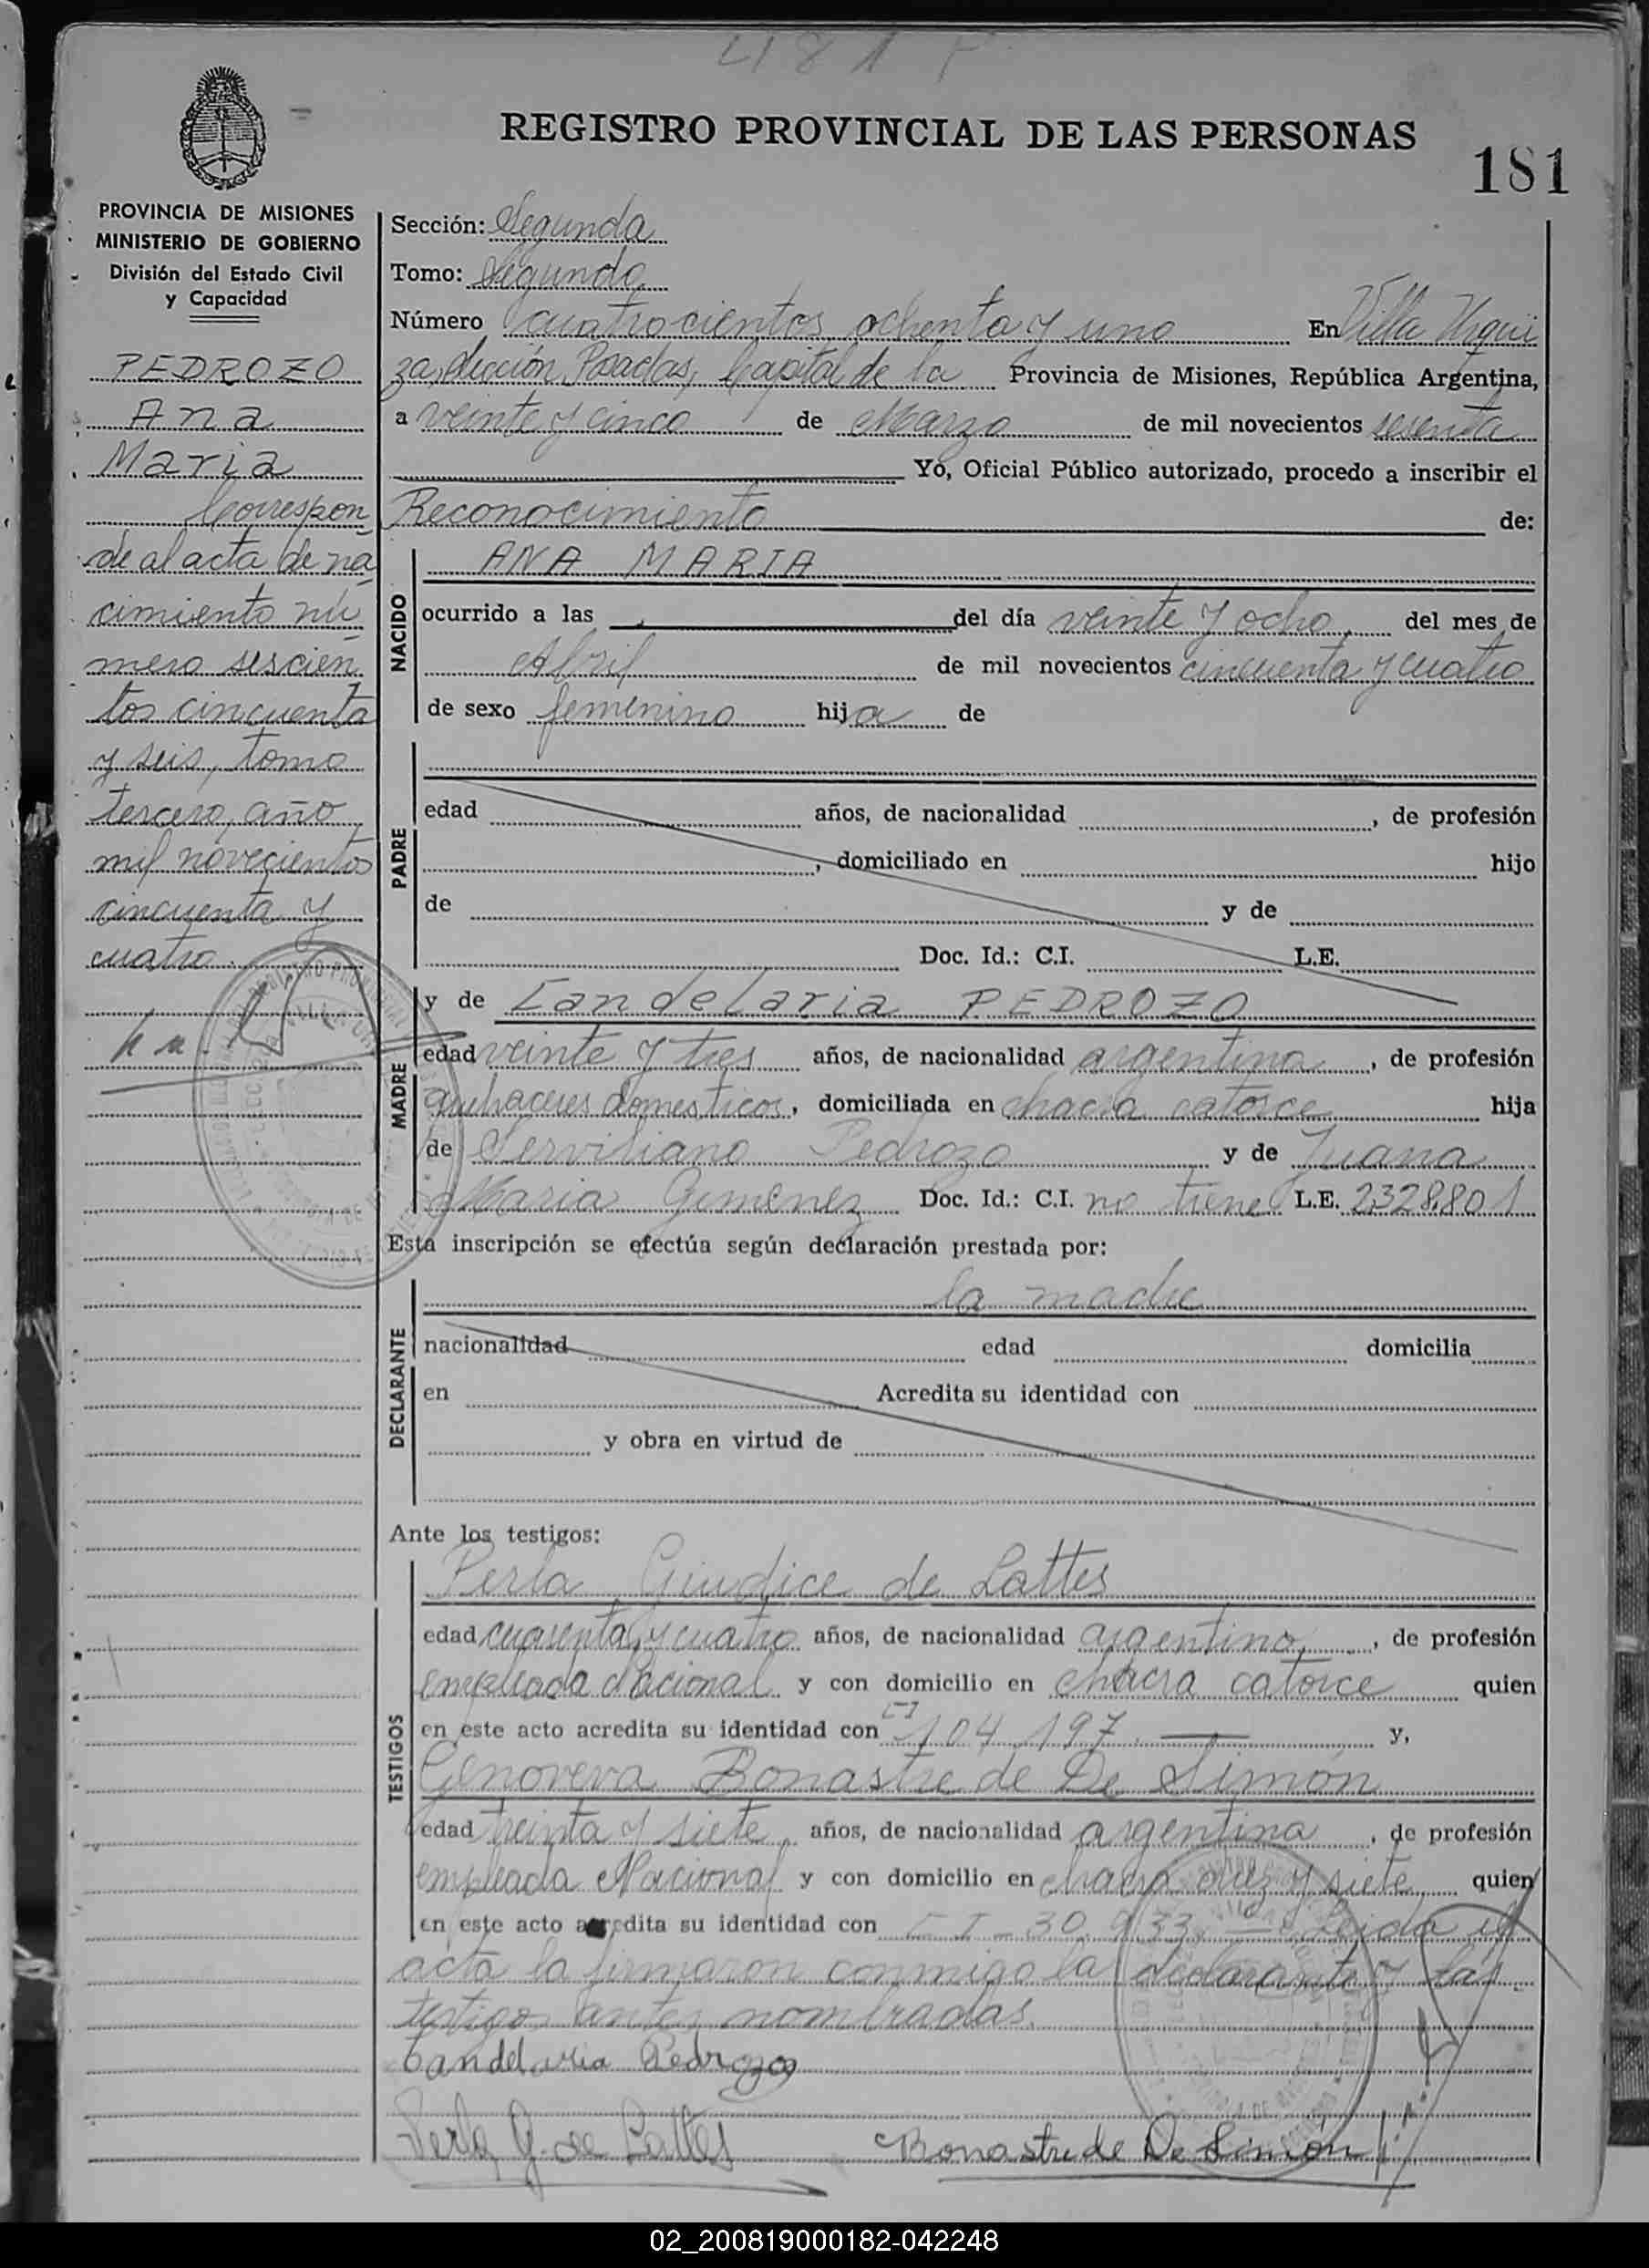 481
REGISTRO PROVINCIAL DE LAS PERSONAS
181
PROVINCIA DE MISIONES
MINISTERIO DE GOBIERNO
División del Estado Civil
y Capacidad
PEDROZO
Ana
Maria
Correspon
de al acta de na
cimiento nú
mero sescien
tos cincuenta
y seis, tomo
tercero, año
mil novecientos
cincuenta y
cuatro.
Sección: Segunda
Tomo: Segundo
Número cuatrocientos ochenta y uno En Villa Urqui
za, sección Posadas, Capital de la Provincia de Misiones, República Argentina,
a veinte y cinco de Marzo de mil novecientos sesenta
Yo, Oficial Público autorizado, procedo a inscribir el
Reconocimiento de:
NACIDO
ANA MARIA
ocurrido a las del día veinte y ocho del mes de
Abril de mil novecientos cincuenta y cuatro
de sexo femenino hija de
PADRE
edad años, de nacionalidad , de profesión
, domiciliado en hijo
de y de
Doc. Id.: C.I. L.E.
MADRE
y de Candelaria PEDROZO
edad veinte y tres años, de nacionalidad argentina, de profesión
quehaceres domesticos, domiciliada en chacra catorce hija
de Serviliano Pedrozo y de Juana
Maria Gimenez Doc. Id.: C.I. no tiene L.E. 2328801
Esta inscripción se efectúa según declaración prestada por:
DECLARANTE
la madre
nacionalidad edad domicilia
en Acredita su identidad con
y obra en virtud de
Ante los testigos:
TESTIGOS
Perla Giudice de Lattes
edad cuarenta y cuatro años, de nacionalidad argentina, de profesión
empleada Nacional y con domicilio en chacra catorce quien
en este acto acredita su identidad con CI 104.197. y,
Genoveva Bonastre de De Simón
edad treinta y siete, años, de nacionalidad argentina, de profesión
empleada Nacional y con domicilio en chacra diez y siete quien
en este acto acredita su identidad con CI 30.933. Leida el
acta la firmaron conmigo la declarante y las
testigo antes nombradas.
Candelaria Pedrozo
Perla G. de Lattes Bonastre de De Simón
02_200819000182-042248